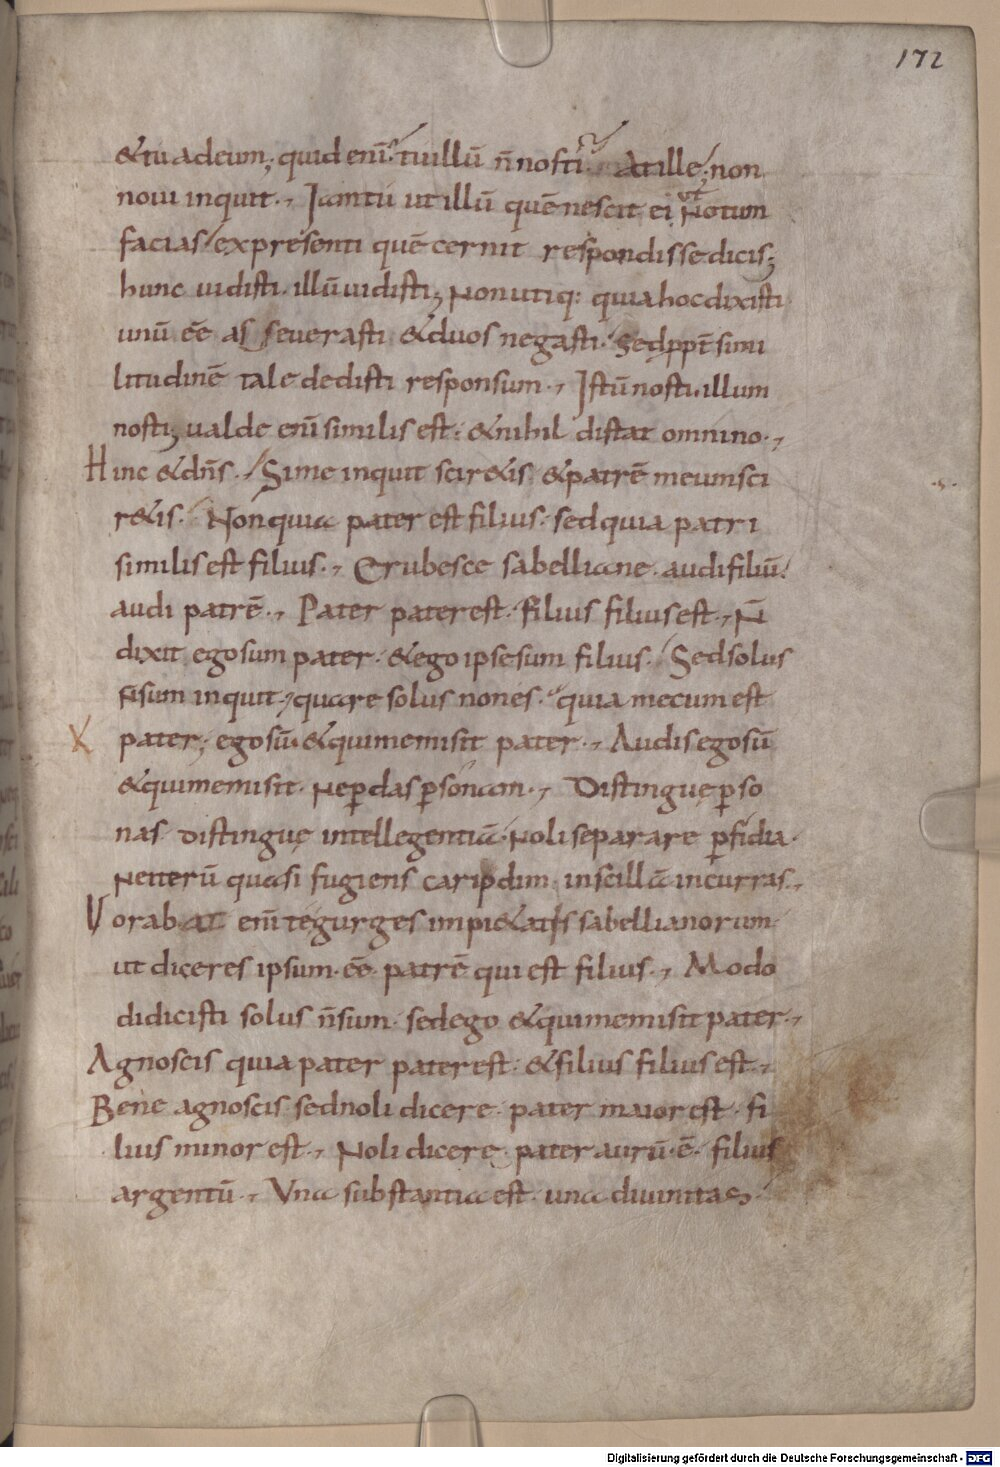 172
&tu ad eum; quid enī tu illū n̄ nosti. At ille; non
novi inquit., Iam tu ut illū quē nescit ei ut Notum
facias/ ex presenti quē cernit respondisse dicis;
hunc uidisti. illū uidisti; Non utiq: quia hoc dixisti
unū eē as severasti &duos negasti. Sed ppt̄ simi
litudinē tale dedisti responsum., Istū nosti. illum
nosti; valde enī similis est: &nihil distat omnino.,
Hinc &dn̄s. Si me inquit scir&is &patrē meum sci
r&is. Non quia pater est filius. sed quia patri
similis est filius., Erubesce sabelliane. audi filiū.
audi patrē., Pater pater est. Filius filius est., N̄
dixit ego sum pater. &ego ipse sum filius. Sed solus
n̄ sum inquit., quare solus non es. quia mecum est
pater; ego sū. &qui me misit pater., Audis ego sū
&qui me misit. Ne p̱das p̱sonam., Distingue p̱so
nas distingue intellegentia. Noli separare p̱fidia.
Ne iterū quasi fugiens caripdim in scillā incurras.,
Vorabat enī te gurges impi&atis sabellianorum
ut diceres ipsum. eē. patrē qui est filius., Modo
didicisti solus n̄ sum. sed ego &qui me misit pater.,
Agnoscis quia pater pater est. &filius filius est.,
Bene agnoscis sed noli dicere. pater maior est. fi
lius minor est., Noli dicere. pater aurū. ē. filius
argentū., Una substantia est. una diuinitas.
Digitalisierung gefördert durch die Deutsche Forschungsgemeinschaft - DFG